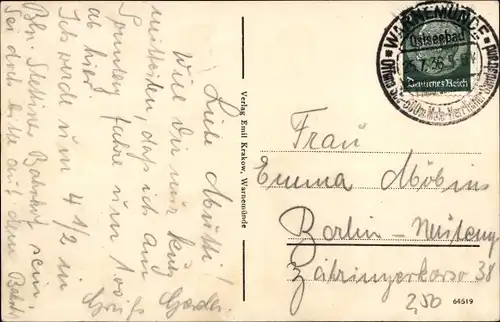 Liebe Mutti!
Will Dir nur kurz
mitteilen, daß ich am
Sonntag fahre um 1.00
ab hier.
Ich werde um 4 1/2 in
Bln. Stettiner Bahnhof sein.
Sei doch bitte auf dem Bahnhof
Gruß
Verlag Emil Krakow, Warnemünde
WARNEMÜNDE
Ostseebad
Deutsches Reich
Frau
Emma Möbius
Berlin-
Zähringerkorso 38
2,50
64519